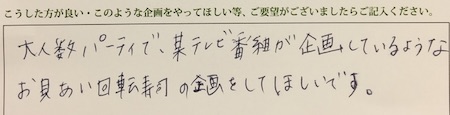 こうした方が良い・このような企画をやってほしい等、ご要望がございましたらご記入ください。
大人数パーティで、某テレビ番組が企画しているような
お見あい回転寿司の企画をしてほしいです。